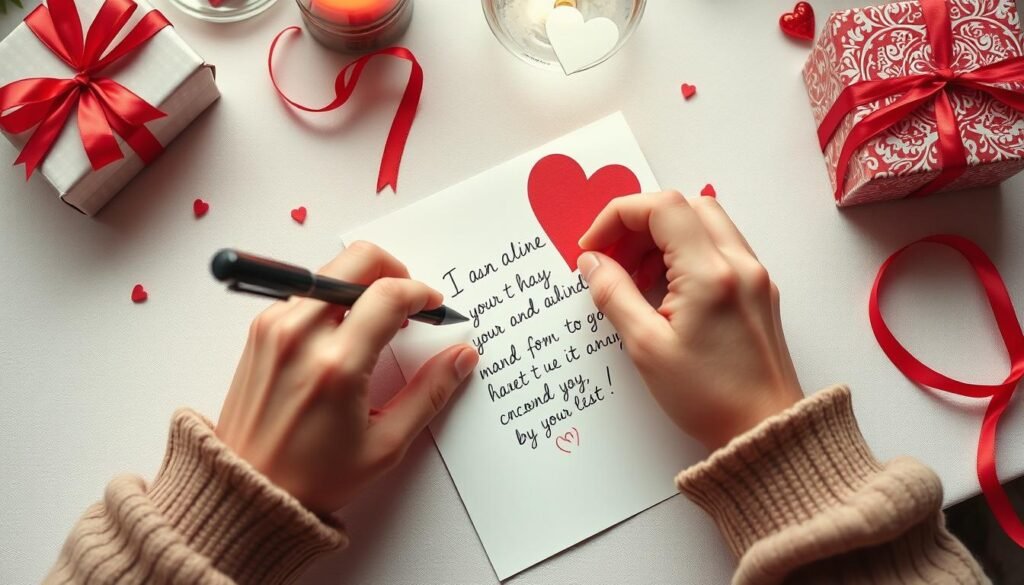 I asn aline
your t hay
your and ailind
mand form to go
haret t ue it anny
cncornd yoy,
by your lest!